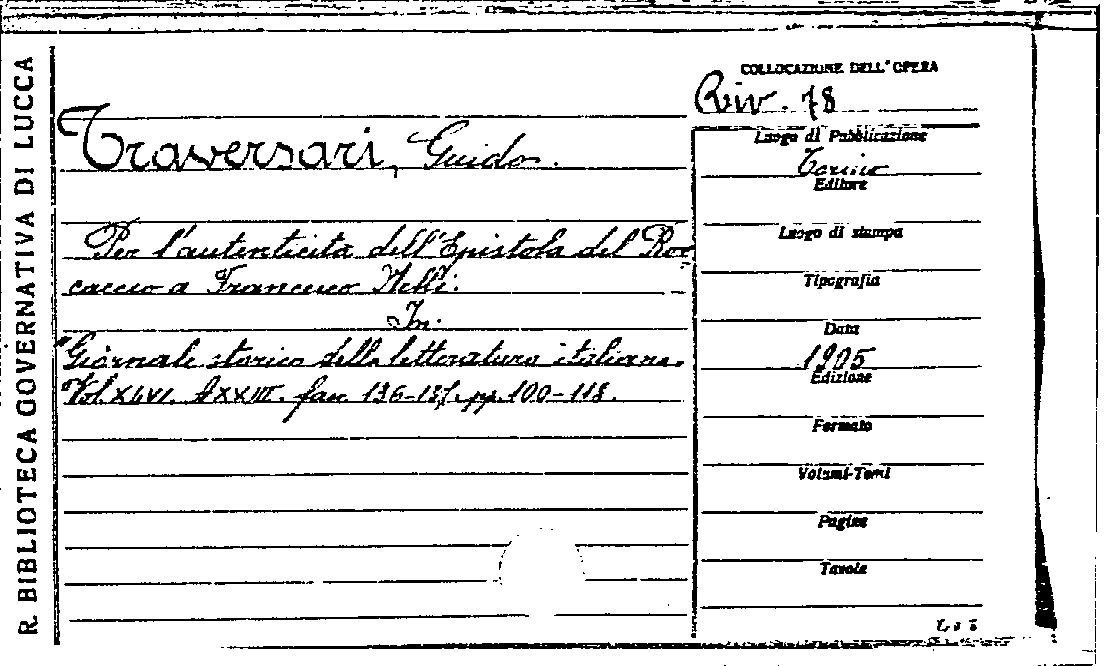 R. BIBLIOTECA GOVERNATIVA DI LUCCA
COLLOCAZIONE DELL'OPERA
Riv. 78
Traversari, Guido.
Per l'autenticità dell'Epistola del Boc
caccio a Francesco Nelli.
In:
"Giornale storico della letteratura italiana.
Vol. XLVI. fasc. 136-137, pp. 100-118.
Luogo di Pubblicazione
Torino
Editore
Luogo di stampa
Tipografia
Data
1905
Edizione
Formato
Volumi-Tomi
Pagine
Tavole